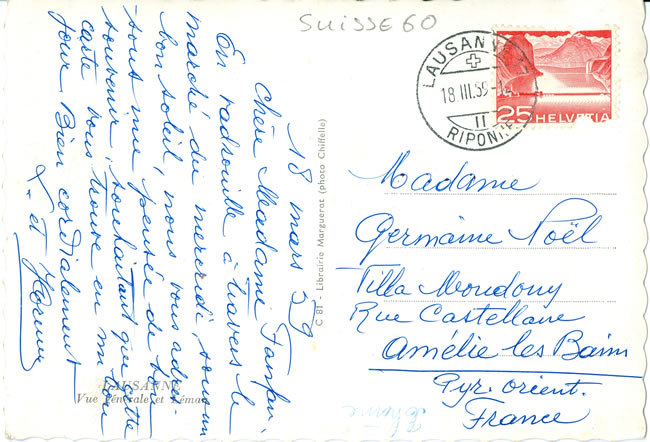 SUISSE 60
LAUSANNE
18.III.59
II
RIPONNE
25 HELVETIA
18 mars 59
Chère Madame
En vadrouille à travers le
marché du mercredi,
bon soleil, nous vous
une pensée de bon
souvenir, souhaitant que cette
carte vous trouve en un bon
jour. Bien cordialement
et
C 81 - Librairie Marguerat (photo Chiffelle)
LAUSANNE
Vue générale et Léman
Madame
Germaine Noël
Villa Moudony
Rue Castellane
Amélie les Bains
Pyr. Orient.
France